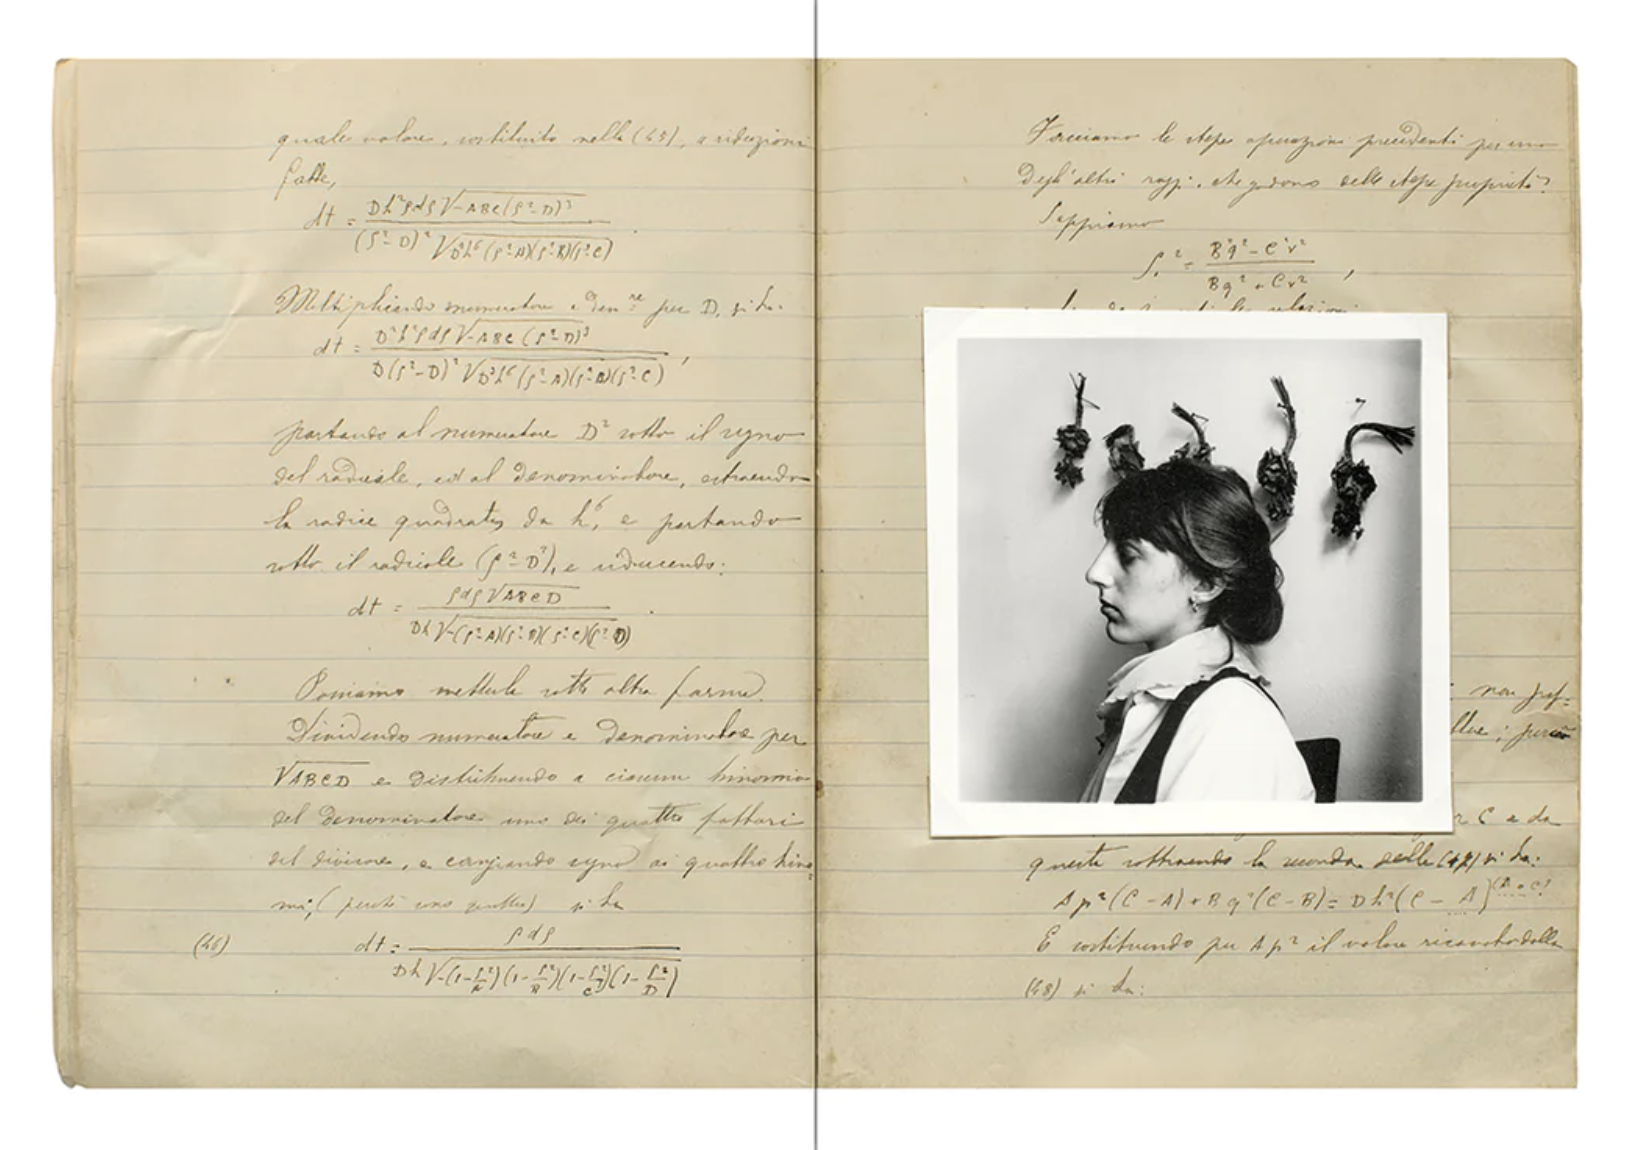 quale valore, sostituito nella (45), a riduzioni
fatte,
dt = Dh²ρdρ√-ABC(ρ²-D)³ / (ρ²-D)²√D²h⁶(ρ²-A)(ρ²-B)(ρ²-C) .
Moltiplicando numeratore e den.re per D, si ha:
dt = D²h²ρdρ√-ABC(ρ²-D)³ / D(ρ²-D)²√D³h⁶(ρ²-A)(ρ²-B)(ρ²-C) ,
portando al numeratore D² sotto il segno
del radicale, ed al denominatore, estraendo
la radice quadrata da h⁶, e portando
sotto il radicale (ρ²-D), e riducendo:
dt = ρdρ√ABCD / Dh√-(ρ²-A)(ρ²-B)(ρ²-C)(ρ²-D) .
Poniamo metterla sotto altra forma.
Dividendo numeratore e denominatore per
√ABCD e distribuendo a ciascun binomio
del denominatore uno dei quattro fattori
del divisore, e cangiando segno ai quattro bino-
mi, ( perché sono quattro) si ha
(46) dt = ρdρ / Dh√-(1-ρ²/A)(1-ρ²/B)(1-ρ²/C)(1-ρ²/D)
Facciamo le stesse operazioni precedenti per uno
degl'altri raggi, che godono delle stesse proprietà?
Sappiamo
ρ₁² = B²q²-C²r² / Bq²+Cr² ,
la relazione
non
; perciò
C e da
questa sottraendo la seconda delle (47) si ha:
Ap²(C-A)+Bq²(C-B)=Dh²(C-A)
E sostituendo per Ap² il valore ricavato dalla
(48) si ha: